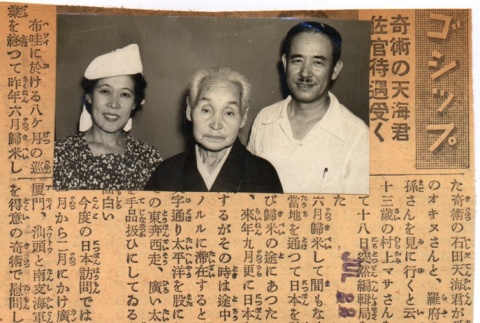 ゴシップ
奇術の天海君
佐官待遇受く
布哇に於ける八ケ月の巡
業を終つて昨年六月歸米し
た奇術の石田天海君が
のオキヌさんと、羅府
孫さんを見に行くと云
十三歳の村上マサさん
て十八日突然編輯局
た
六月歸米して間もな
當地を通つて日本を
び歸米の途にあつた
、來年九月更に日本
するがその時は途中
ノルルに滯在すると
字通り太平洋を股に
の東奔西走、廣い太
を手品扱ひにしてゐる
面白い
今度の日本訪問では
月から二月にかけ廣
厦門、汕頭と南支海軍
を得意の奇術で慰問し
JUL 22